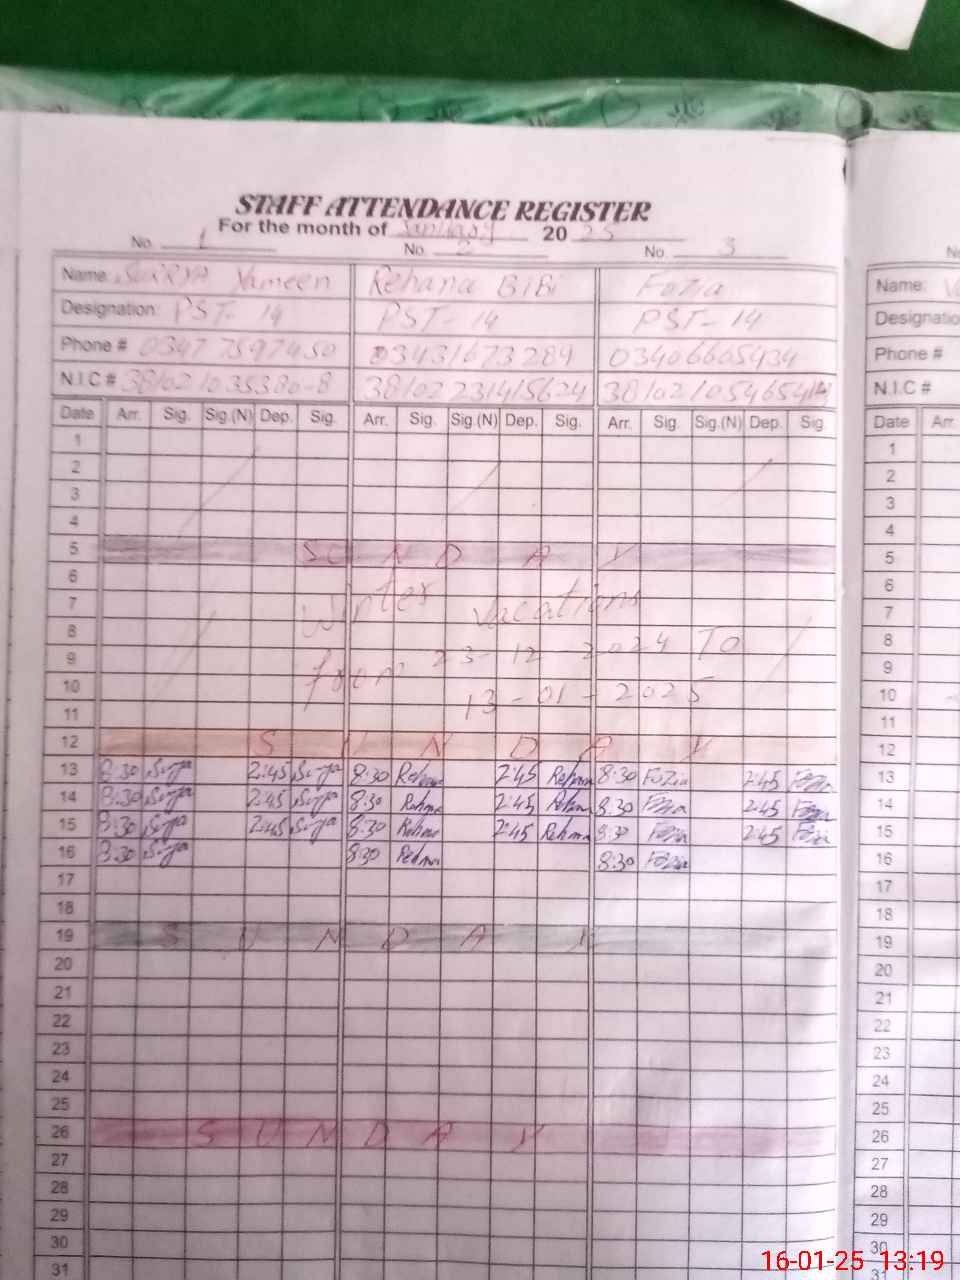 STAFF ATTENDANCE REGISTER
For the month of January 2025
No. 1 No. 2 No. 3
Name: Surrya Yameen Rehana BiBi Fozia Name:
Designation: PST-14 PST-14 PST-14 Designatio
Phone # 0347 7597450 03431673289 03406605434 Phone #
N.I.C # 38102 1035380-8 38102 231415624 38102 1054654 N.I.C #
Date Arr. Sig. Sig.(N) Dep. Sig. Arr. Sig. Sig.(N) Dep. Sig. Arr. Sig. Sig.(N) Dep. Sig. Date Arr.
1 1
2 2
3 3
4 4
5 SUNDAY 5
6 6
7 Winter Vacations 7
8 8
9 from 23-12-2024 To 9
10 13-01-2025 10
11 11
12 SUNDAY 12
13 8:30 Surya 2:45 Surya 8:30 Rehana 2:45 Rehana 8:30 Fozia 2:45 Fozia 13
14 8:30 Surya 2:45 Surya 8:30 Rehana 2:45 Rehana 8:30 Fozia 2:45 Fozia 14
15 8:30 Surya 2:45 Surya 8:30 Rehana 2:45 Rehana 8:30 Fozia 2:45 Fozia 15
16 8:30 Surya 8:30 Rehana 8:30 Fozia 16
17 17
18 18
19 SUNDAY 19
20 20
21 21
22 22
23 23
24 24
25 25
26 SUNDAY 26
27 27
28 28
29 29
30 30
31 31
16-01-25 13:19